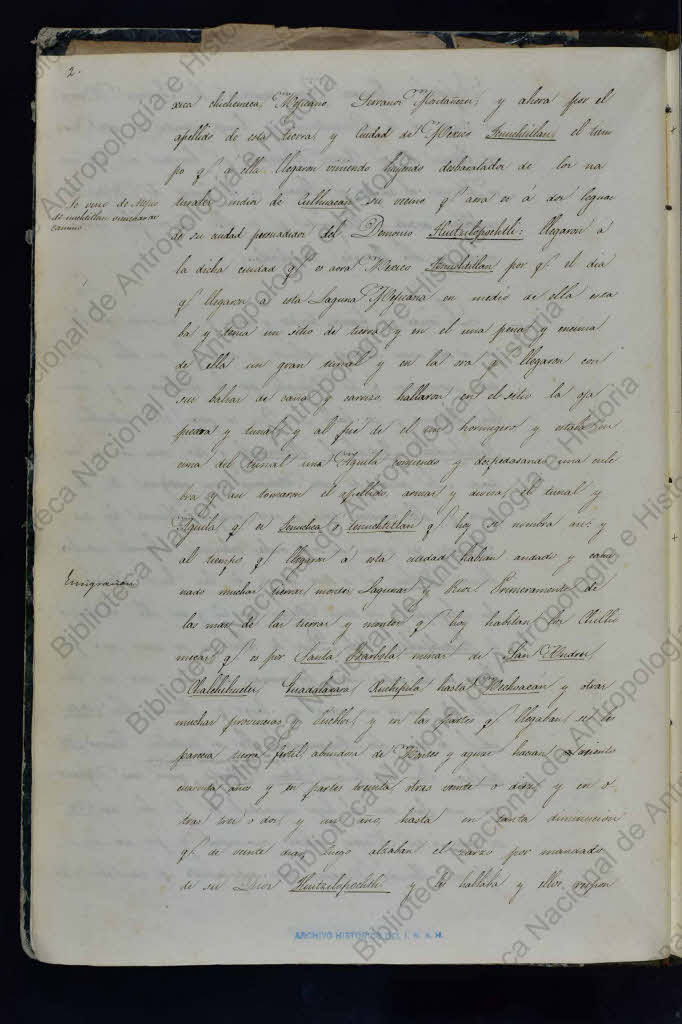 2.
axca chichimeca, Mexicano. Serranos Montañeses; y ahora por el
apellido de esta tierra, y Ciudad de Mexico Tenuchtitlan el tiem
po q.e á ella llegaron viniendo huyendo desbaratados de los na
turales indios de Culhuacan su vecino q.e aora es á dos leguas
de su ciudad persuadidos del Demonio Huitzilopochtli: llegaron á
la dicha ciudad q.e es aora Mexico Tenuchtitlan por q.e el dia
q.e llegaron á esta Laguna Mexicana en medio de ella esta
ba y tenia un sitio de tierra y en el una peña y encima
de ella un gran tunal y en la ora q.e llegaron con
sus balsas de caña y carrizo hallaron en el sitio la oja
piedra y tunal y al pie de el un hormiguero y estaba en
cima del tunal una Aguila comiendo y despedasando una cule
bra y asi tomaron el apellido, armas y divisa el tunal y
Aguila q.e es Tenuchca o tenuchtitlan q.e hoy se nombra asi y
al tiempo q.e llegaron á esta ciudad habian andado y cami
nado muchas tierras montes Lagunas y Rios Primeramente de
las mas de las tierras y montes q.e hoy habitan los Chichi
mecas q.e es por Santa Barbola minas de San Andres
Chalchihuites, Guadalaxara Xuchipila hasta Mechoacan y otras
muchas provincias y Pueblos y en las partes q.e llegaban si les
parecia tierra fertil abundosa de Montes y aguas hacian asiento
cuarenta años y en partes treinta otras veinte o diez y en o-
tras tres o dos y un año, hasta en tanta diminucion
q.e de veinte dias luego alzaban el zarzo por mandado
de su Dios Huitzilopochtli y les hablaba y ellos respon
Se vino de
camino.
Emigracion
ARCHIVO HISTORICO DEL I. N. A. H.
Biblioteca Nacional de Antropología e Historia